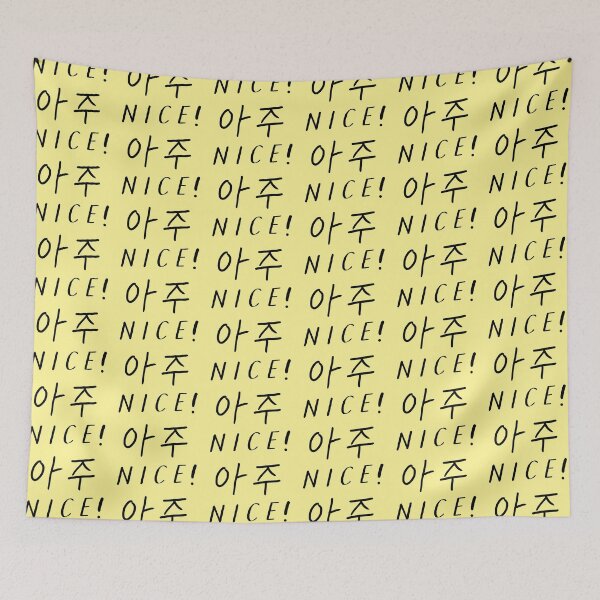 NICE! 아주 NICE! 아주 NICE! 아주
아주 NICE! 아주 NICE! 아주 NICE!
NICE! 아주 NICE! 아주 NICE! 아주
아주 NICE! 아주 NICE! 아주 NICE!
NICE! 아주 NICE! 아주 NICE! 아주
아주 NICE! 아주 NICE! 아주 NICE!
NICE! 아주 NICE! 아주 NICE! 아주
아주 NICE! 아주 NICE! 아주 NICE!
NICE! 아주 NICE! 아주 NICE! 아주
아주 NICE! 아주 NICE! 아주 NICE!
NICE! 아주 NICE! 아주 NICE! 아주
아주 NICE! 아주 NICE! 아주 NICE!
NICE! 아주 NICE! 아주 NICE! 아주